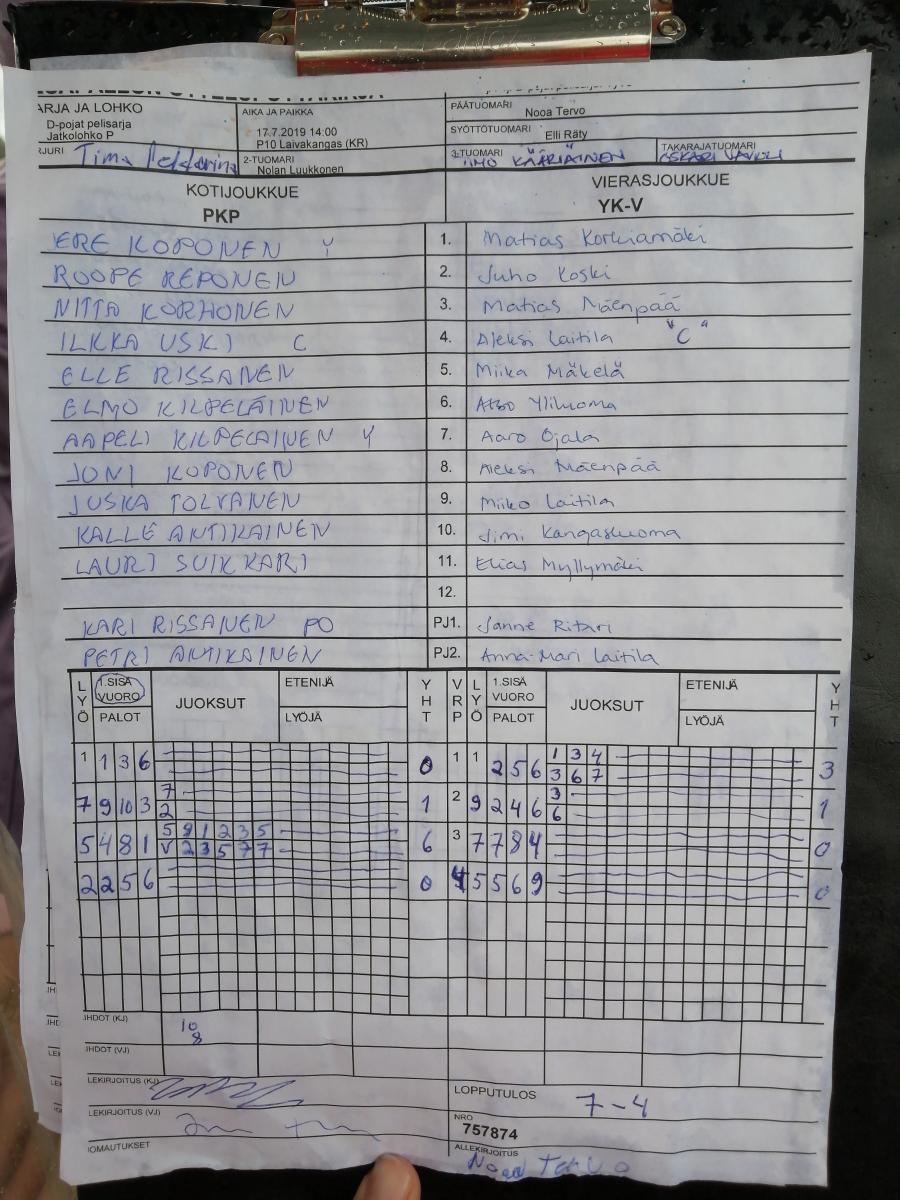 ARJA JA LOHKO
D-pojat pelisarja
Jatkolohko P
AIKA JA PAIKKA
17.7.2019 14:00
P10 Laivakangas (KR)
PÄÄTUOMARI
Nooa Tervo
SYÖTTÖTUOMARI
Elli Räty
RJURI Timo
2-TUOMARI
Nolan Luukkonen
3-TUOMARI
TIMO KÄÄRIÄINEN
TAKARAJATUOMARI
OSKARI
KOTIJOUKKUE
PKP
VIERASJOUKKUE
YK-V
ERE KOPONEN Y 1. Matias Korkiamäki
ROOPE REPONEN 2. Juho Koski
NIITA KORHONEN 3. Matias Mäenpää
ILKKA USKI C 4. Aleksi Laitila "C"
ELLE RISSANEN 5. Miika Mäkelä
ELMO KILPELÄINEN 6. Atso Yliluoma
AAPELI KILPELÄINEN Y 7. Aaro Ojala
JONI KOPONEN 8. Aleksi Mäenpää
JUSKA TOLVANEN 9. Miiko Laitila
KALLE ANTIKAINEN 10. Jimi Kangasluoma
LAURI SUIKKARI 11. Elias Myllymäki
12.
KARI RISSANEN PO PJ1. Janne Ritari
PETRI ANTIKAINEN PJ2. Anna-Mari Laitila
LYÖ 1.SISÄ VUORO PALOT JUOKSUT ETENIJÄ LYÖJÄ YHT VRP LYÖ 1.SISÄ VUORO PALOT JUOKSUT ETENIJÄ LYÖJÄ YHT
1 1 3 6 0 1 1 2 5 6 1 3 4 3
3 6 7
7 9 10 3 7 1 2 9 2 4 6 3 1
2 6
5 4 8 1 5 9 1 2 3 5 6 3 7 7 8 4 0
V 2 3 5 7 7
2 2 5 6 0 4 5 5 6 9 0
IHDOT (KJ) 10
8
IHDOT (VJ)
LEKIRJOITUS (KJ)
LEKIRJOITUS (VJ)
IOMAUTUKSET
LOPPUTULOS 7-4
NRO
757874
ALLEKIRJOITUS
Nooa Tervo